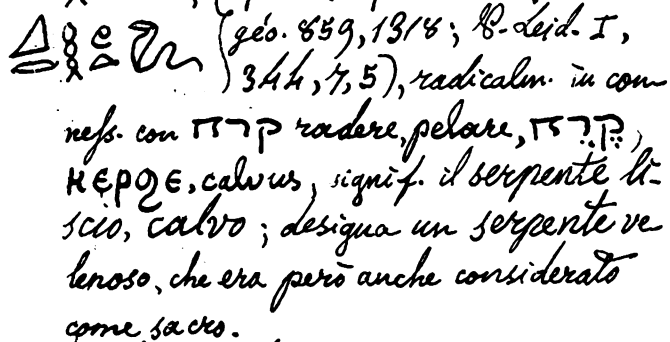 (géo. 859, 1318; P. Leid. I,
344, 7, 5), radicalm. in con-
ness. con קרח radere, pelare, קֵרֵחַ,
ⲕⲉⲣϩⲉ, calvus, signif. il serpente li-
scio, calvo; designa un serpente ve
lenoso, che era però anche considerato
come sacro.